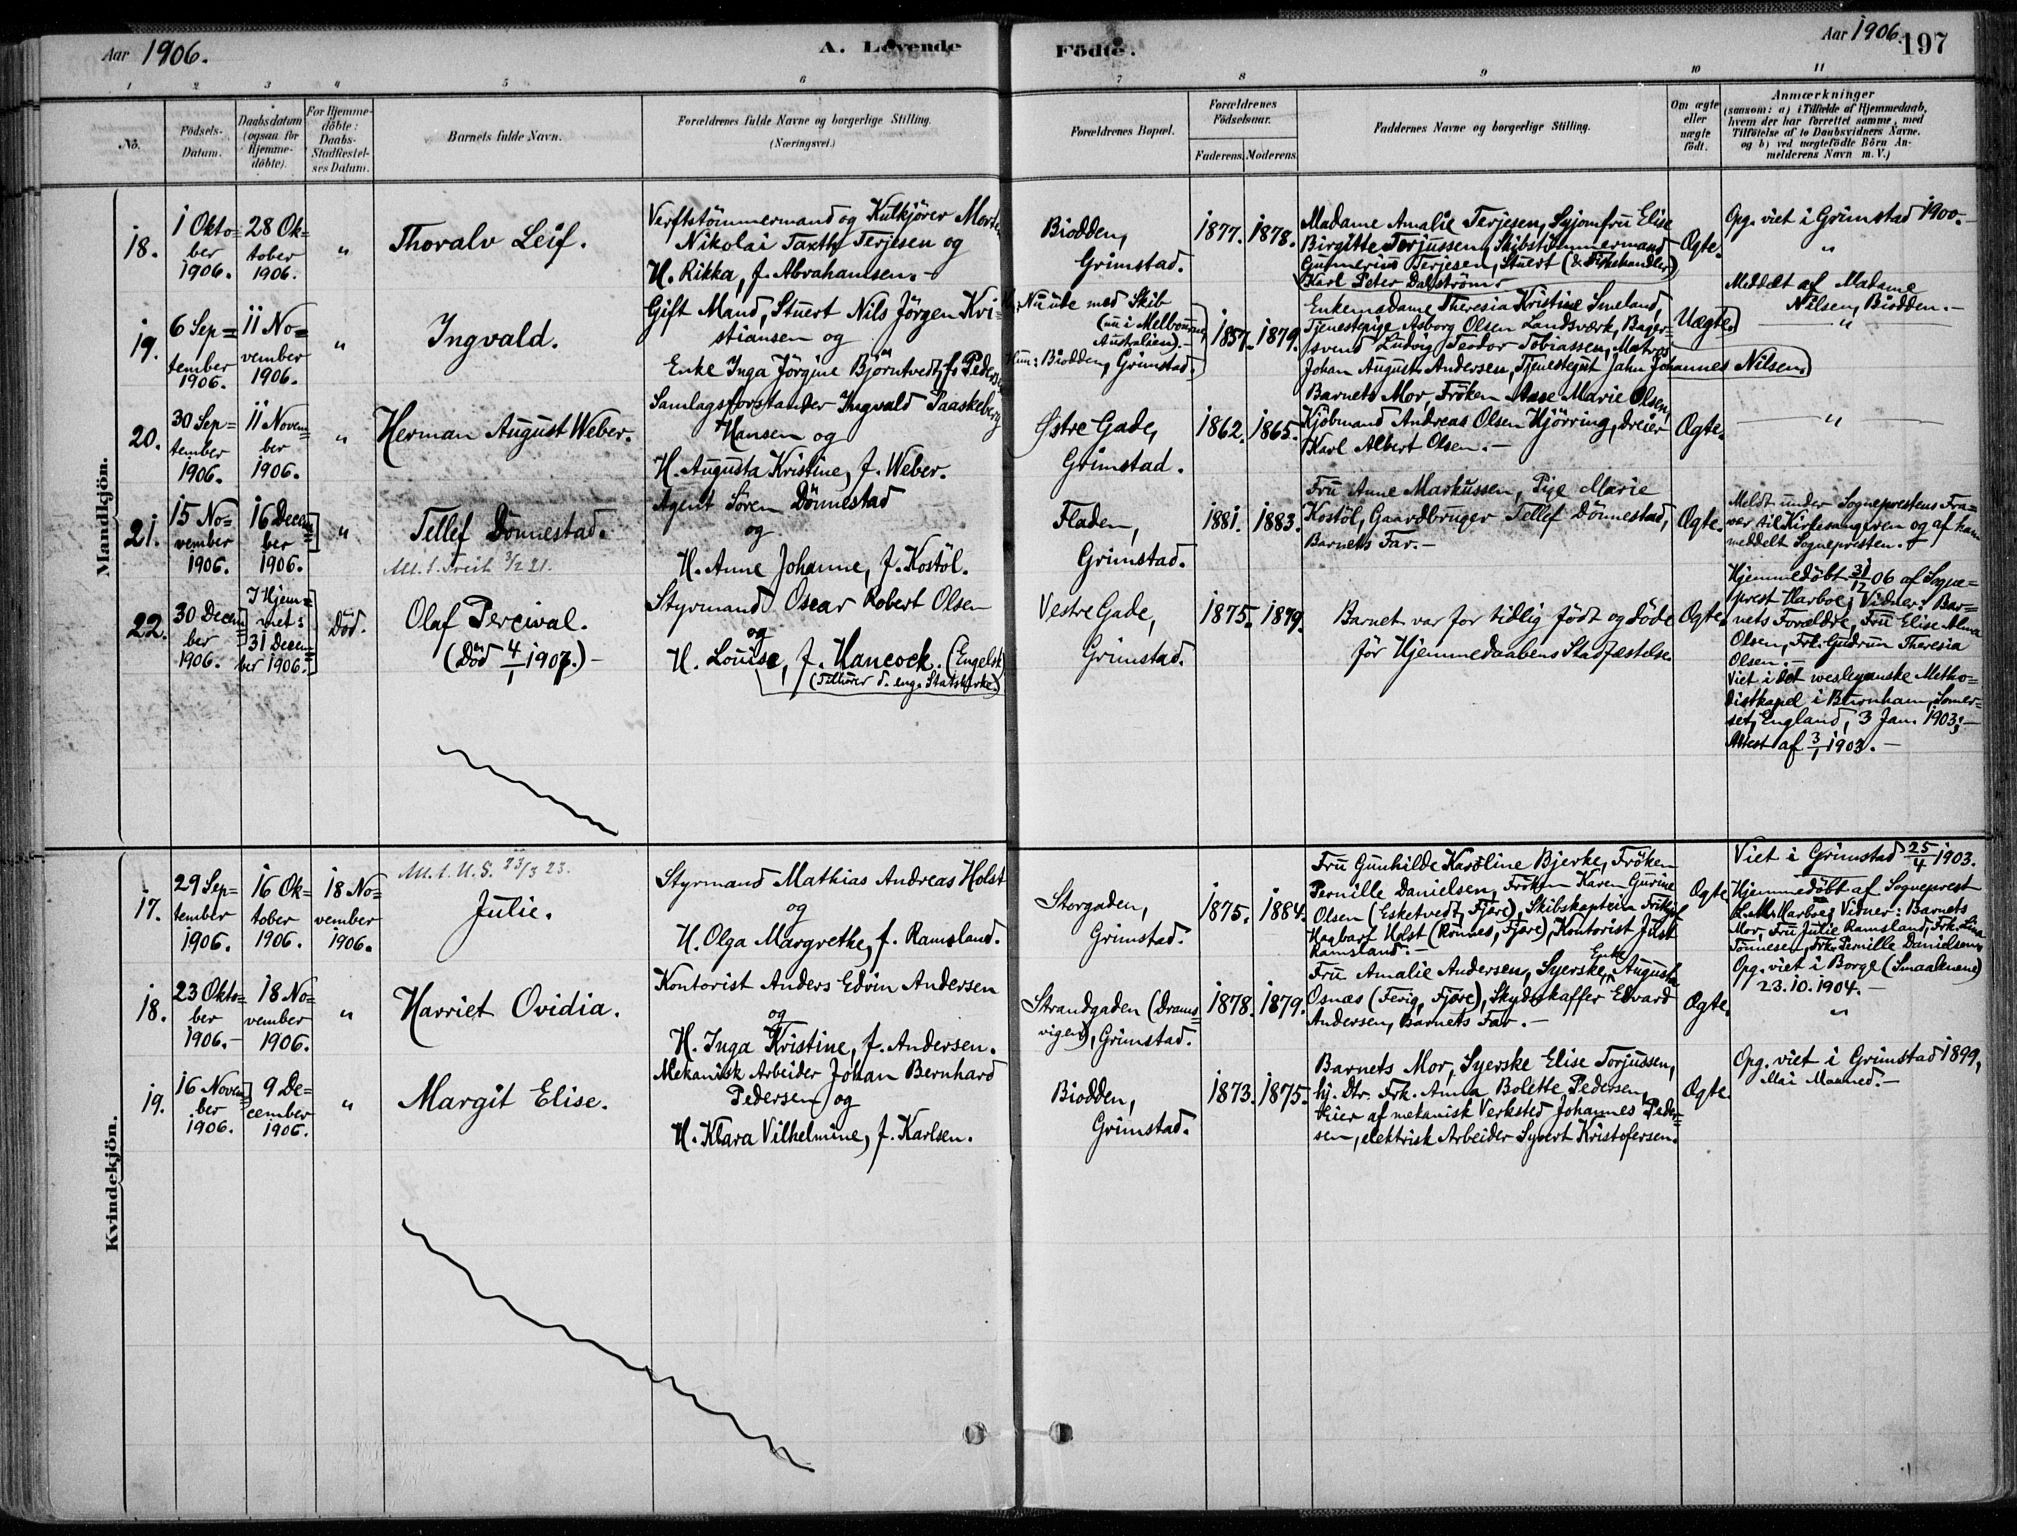 Aar 1906.
A. Levende Födte.
Aar 1906.
197
1 2 3 4 5 6 7 8 9 10 11
No.
Födsels-
Datum.
Daabsdatum
(ogsaa for
Hjemme-
döbte).
For Hjemme-
döbte:
Daabs-
Stadfæstel-
ses Datum.
Barnets fulde Navn.
Forældrenes fulde Navne og borgerlige Stilling.
(Næringsvei.)
Forældrenes Bopæl.
Forældrenes
Födselsaar.
Faderens. Moderens.
Faddernes Navne og borgerlige Stilling.
Om ægte
eller
uægte
födt.
Anmærkninger
(saasom: a) i Tilfælde af Hjemmedaab,
hvem der har forrettet samme, med
Tilföielse af to Daabsvidners Navne.
og b) ved uægtefödte Börn An-
melderens Navn m. V.)
Mandkjön.
18.
1 Okto=
ber
1906.
28 Ok=
tober
1906.
"
Thoralv Leif.
Verftstömmermand og Kulkjörer Morten
Nikolai Taxth Terjesen og
H. Rikka, f. Abrahamsen.-
Biodden,
Grimstad.
1877. 1878.
Madame Amalie Terjesen, Syjomfru Elise
Birgitte Terjussen, Skibstömmermand
Gunnerius Terjesen, Stuert (& Fiskehandler)
Karl Peter Dahlström.
Ægte.
Opg. viet i Grimstad 1900.-
"
19.
6 Sep=
tember
1906.
11 No=
vember
1906.
"
Ingvald.
Gift Mand, Stuert Nils Jörgen Kri=
stiansen og
Enke Inga Jörgine Björntvedt, f. Pedersen
Nu ute med Skib
(nu i Melbourne,
Australien).-
Hun: Biodden, Grimstad.
1857. 1879.
Enkemadame Theresia Kristine Smeland,
Tjenestepige Asborg Olsen Landsværk, Bager=
svend Ludvig Teodor Tobiassen, Matros
Johan August Andersen, Tjenestegut Jahn Johannes Nilsen.
Uægte.
Meddelt af Madame
Nilsen, Biodden.-
"
20.
30 Sep=
tember
1906.
11 Novem=
ber
1906.
"
Herman August Weber.
Samlagsforstander Ingvald Paaskeberg
Hansen og
H. Augusta Kristine, f. Weber.
Østre Gade,
Grimstad.
1862. 1865.
Barnets Mor, Fröken Anne Marie Olsen,
Kjöbmand Andreas Olsen Hjörring, Dreier
Karl Albert Olsen.-
Ægte.
"
21.
15 No=
vember
1906.
16 Decem=
ber
1906.
"
Tellef Dönnestad.
Agent Sören Dönnestad
og
H. Anne Johanne, f. Kostöl.
Fladen,
Grimstad.
1881. 1883.
Fru Anne Markussen, Pige Marie
Kostöl, Gaardbruger Tellef Dönnestad,
Barnets Far.-
Ægte.
Meldt under Sogneprestens Fra=
vær til Kirkesangeren og af ham
meddelt Sognepresten.-
22.
30 Decem=
ber
1906.
I Hjem=
met:
31 Decem=
ber 1906.
Död.
Olaf Percival.
(Död 4/1 1907.)-
Styrmand Oscar Robert Olsen
og
H. Louise, f. Hancock. (Engelsk
(Tilhörer d. eng. Statskirke.)
Vestre Gade,
Grimstad.
1875. 1879.
Barnet var for tidlig födt og döde
för Hjemmedaabens Stadfæstelse.
Ægte.
Hjemmedöbt 31/12 06 af Sogne=
prest Harboe; Vidner: Bar=
nets Forældre, Fru Elise Alma
Olsen, Frk. Gudrun Theresia
Olsen.-
Viet i det wesleyanske Metho=
distkapel i Burnham, Somer=
set, England, 3 Jan. 1903;-
Attest af 3/1 1903.-
Kvindekjön.
17.
29 Sep=
tember
1906.
16 Ok=
tober
1906.
18 No=
vember
1906.
23/3 23.
Julie.
Styrmand Mathias Andreas Holst
og
H. Olga Margrethe, f. Ramsland.
Storgaden,
Grimstad.
1875. 1884.
Fru Gunhilde Karoline Bjerke, Fröken
Pernille Danielsen, Fröken Karen Gurine
Olsen (Esketvedt, Fjære), Skibskaptein Fritjof
Hagbart Holst (Rönnes, Fjære), Kontorist Just
Ramsland.-
Ægte
Viet i Grimstad 25/4 1903.
Hjemmedöbt af Sogneprest
Harboe; Vidner: Barnets
Mor, Fru Julie Ramsland, Frk. Lina
Tönnesen, Frk. Pernille Danielsen.
18.
23 Okto=
ber
1906.-
18 No=
vember
1906.
"
Harriet Ovidia.
Kontorist Anders Edvin Andersen
og
H. Inga Kristine, f. Andersen.
Strandgaden (Drams=
vigen), Grimstad.
1878. 1879.
Fru Amalie Andersen, Syerske, Enke Augusta
Osnæs (Fevig, Fjære), Skydsskaffer Edvard
Andersen, Barnets Far.-
Ægte.
Opg. viet i Borge (Smaalenene)
23.10.1904.-
"
19.
16 Novem=
ber
1906.
9 De=
cember
1906.
"
Margit Elise.
Mekanisk Arbeider Johan Bernhard
Pedersen og
H. Klara Vilhelmine, f. Karlsen.
Biodden,
Grimstad.
1873. 1875.
Barnets Mor, Syerske Elise Torjussen,
hj. Dtr. Frk. Anna Bolette Pedersen,
Eier af mekanisk Verksted Johannes Peder=
sen, elektrisk Arbeider Syvert Kristofersen.
Ægte.
Opg. viet i Grimstad 1899,
Mai Maaned.-